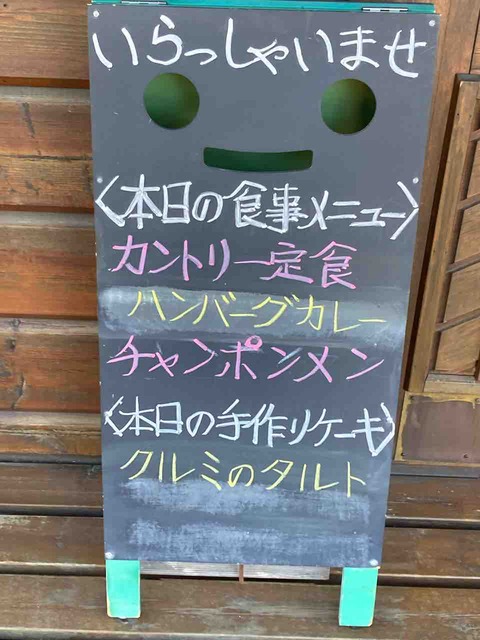 いらっしゃいませ
〈本日の食事メニュー〉
カントリー定食
ハンバーグカレー
チャンポンメン
〈本日の手作りケーキ〉
クルミのタルト